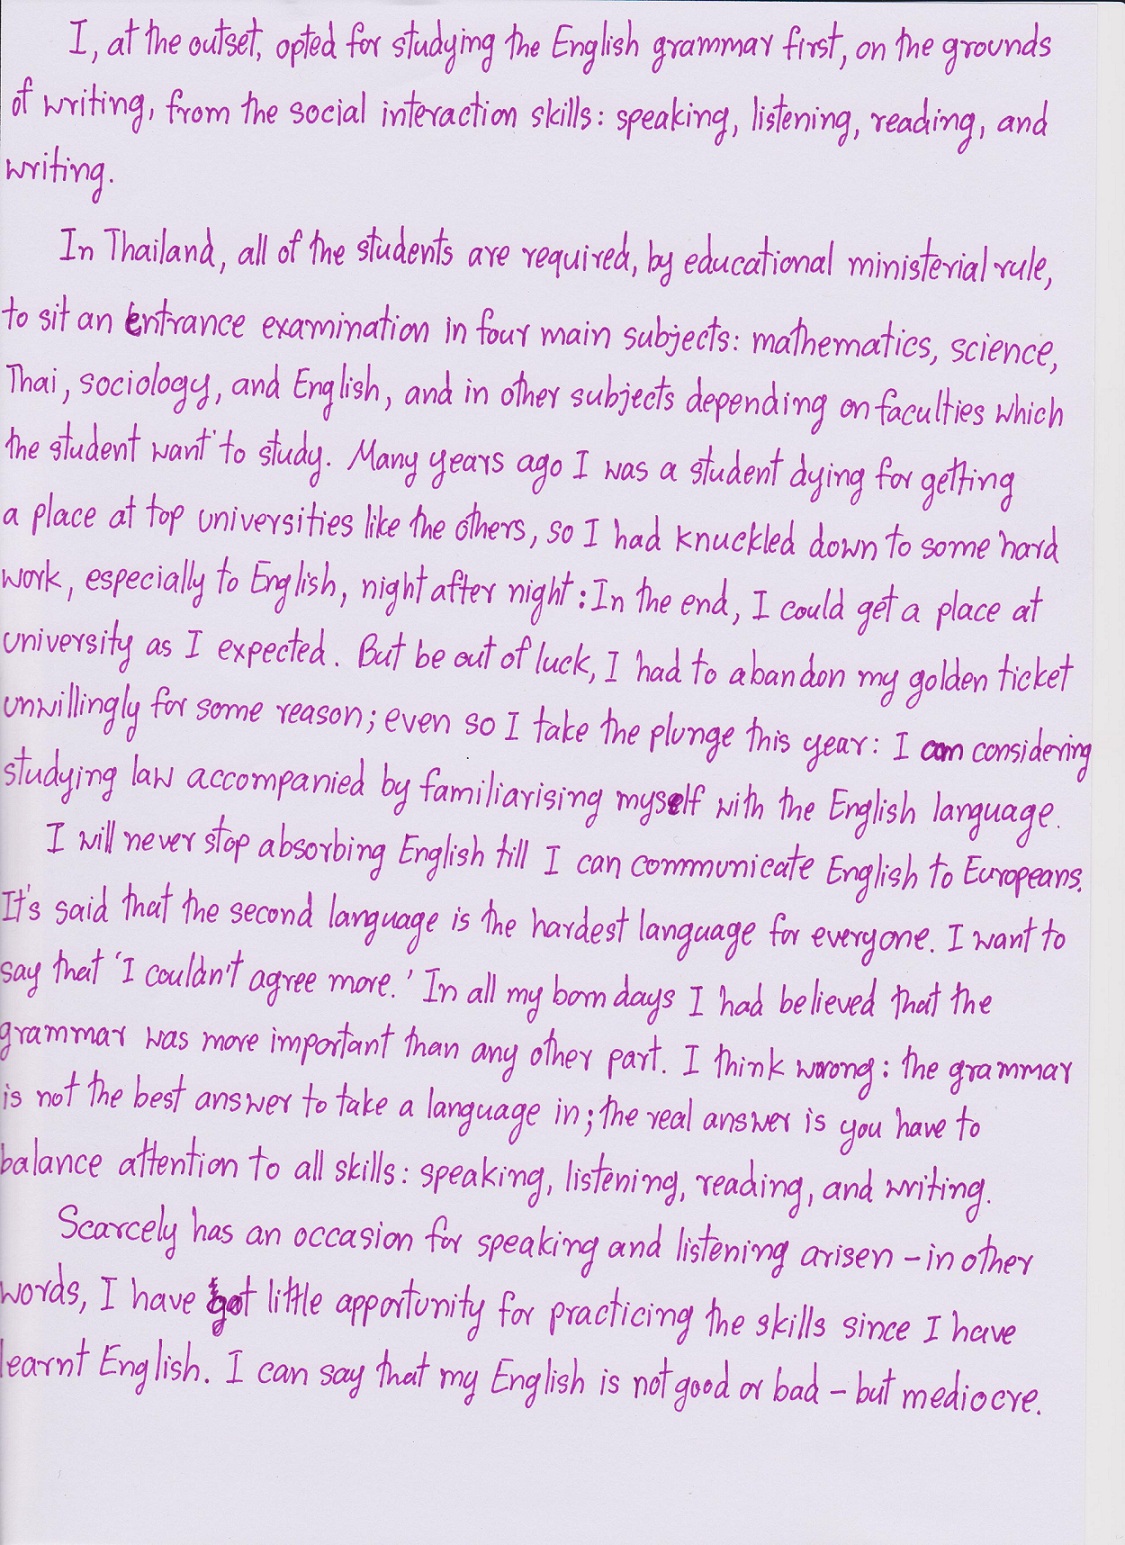 I, at the outset, opted for studying the English grammar first, on the grounds
of writing, from the social interaction skills: speaking, listening, reading, and
writing.
In Thailand, all of the students are required, by educational ministerial rule,
to sit an entrance examination in four main subjects: mathematics, science,
Thai, sociology, and English, and in other subjects depending on faculties which
the student want to study. Many years ago I was a student dying for getting
a place at top universities like the others, so I had knuckled down to some hard
work, especially to English, night after night: In the end, I could get a place at
university as I expected. But be out of luck, I had to abandon my golden ticket
unwillingly for some reason; even so I take the plunge this year: I am considering
studying law accompanied by familiarising myself with the English language.
I will never stop absorbing English till I can communicate English to Europeans.
It's said that the second language is the hardest language for everyone. I want to
say that 'I couldn't agree more.' In all my born days I had believed that the
grammar was more important than any other part. I think wrong: the grammar
is not the best answer to take a language in; the real answer is you have to
balance attention to all skills: speaking, listening, reading, and writing.
Scarcely has an occasion for speaking and listening arisen – in other
words, I have got little apportunity for practicing the skills since I have
learnt English. I can say that my English is not good or bad – but mediocre.